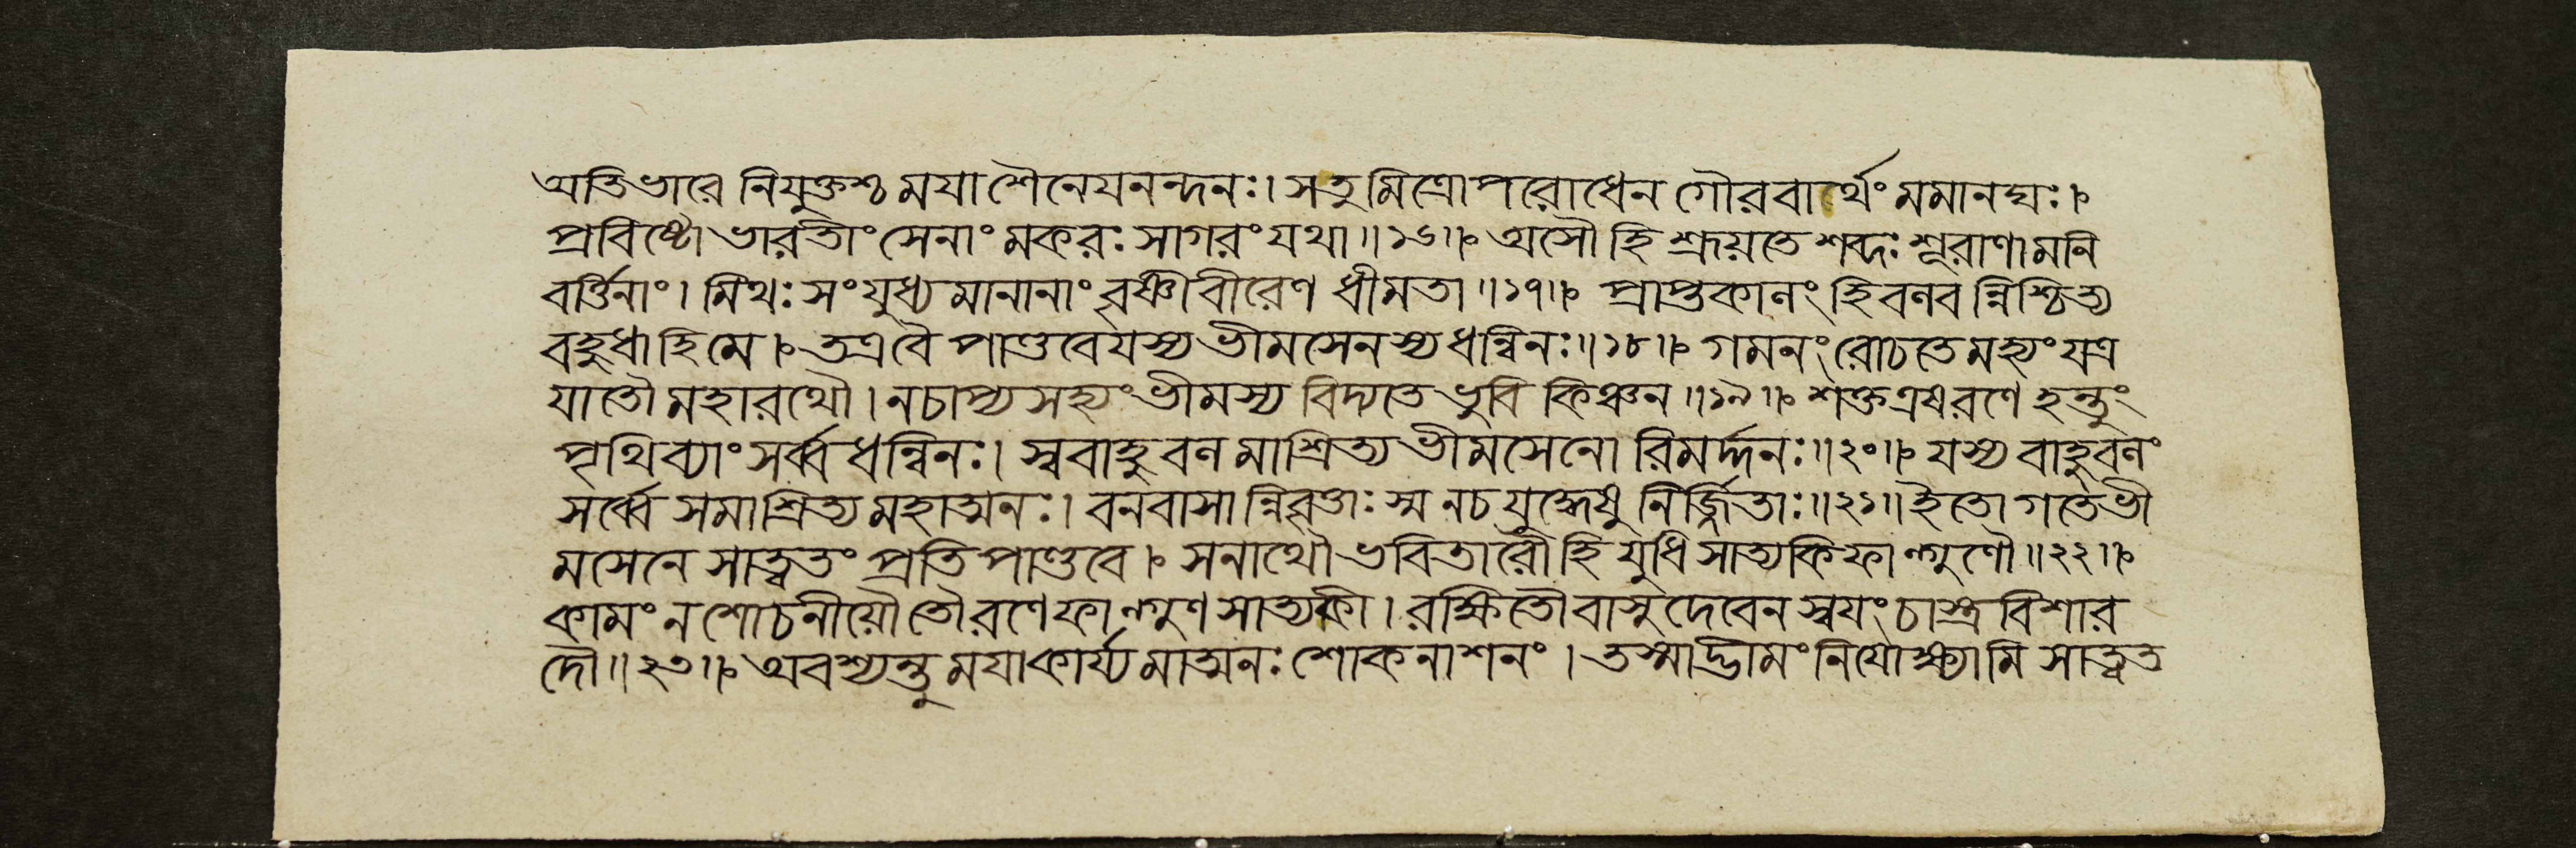 অতিভারে নিযুক্তশ্চ ময়া শৈনেয়নন্দনঃ। সতু মিত্রোপরোধেন গৌরবার্থং মমানঘঃ।
প্রবিষ্টো ভারতীং সেনাং মকরঃ সাগরং যথা॥১৬॥ অসৌ হি শ্রূয়তে শব্দঃ শূরাণামনি
বর্ত্তিনাং। মিথঃ সংযুধ্যমানানাং বৃষ্ণীবীরেণ ধীমতা॥১৭॥ প্রাপ্তকালং হি বলবন্নিশ্চিত্য
বহুধা হি মে। তত্র বৈ পাণ্ডবেয়স্য ভীমসেনস্য ধন্বিনঃ॥১৮॥ গমনং রোচতে মহ্যং যত্র
যাতৌ মহারথৌ। নচাপ্য সহ্যং ভীমস্য বিদ্যতে ভুবি কিঞ্চন॥১৯॥ শক্ত এষ রণে হন্তুং
পৃথিব্যাং সর্ব্বধন্বিনঃ। স্ববাহুবলমাশ্রিত্য ভীমসেনো রিমর্দ্দনঃ॥২০॥ যস্য বাহুবলং
সর্ব্বে সমাশ্রিত্য মহাত্মনঃ। বনবাসান্নিবৃত্তাঃ স্ম নচ যুদ্ধেষু নির্জ্জিতাঃ॥২১॥ ইতো গতে ভী
মসেনে সাত্বতং প্রতি পাণ্ডবে। সনাথৌ ভবিতারৌ হি যুধি সাত্যকি ফাল্গুণৌ॥২২॥
কামং ন শোচনীয়ৌ তৌ রণে ফাল্গুণ সাত্যকী। রক্ষিতৌ বাসুদেবেন স্বয়ং চাস্ত্র বিশার
দৌ॥২৩॥ অবশ্যন্তু ময়া কার্য্যমাত্মনঃ শোকনাশনং। তস্মাদ্ভীমং নিযোক্ষ্যামি সাত্বত